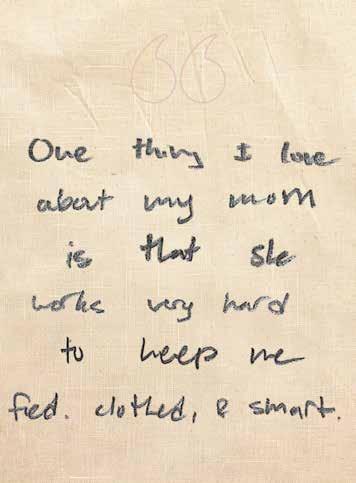 One thing I love
about my mom
is that she
works very hard
to keep me
fied. clothed, & smart.